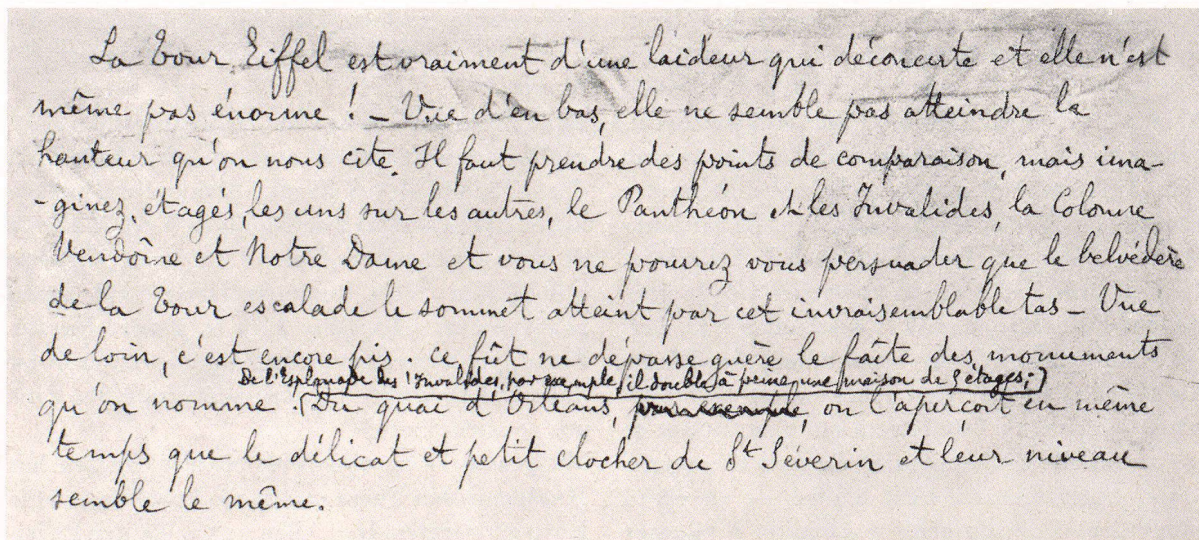 La Tour Eiffel est vraiment d'une laideur qui déconcerte et elle n'est
même pas énorme ! – Vue d'en bas, elle ne semble pas atteindre la
hauteur qu'on nous cite. Il faut prendre des points de comparaison, mais ima-
-ginez, étagés, les uns sur les autres, le Panthéon et les Invalides, la Colonne
Vendôme et Notre Dame et vous ne pourrez vous persuader que le belvédère
de la Tour escalade le sommet atteint par cet invraisemblable tas – Vue
de loin, c'est encore pis. Ce fût ne dépasse guère le faîte des monuments
De l'Esplanade des Invalides, par exemple, il double à peine une maison de 5 étages;)
qu'on nomme. (Du quai d'Orléans, par exemple, on l'aperçoit en même
temps que le délicat et petit clocher de St Séverin et leur niveau
semble le même.